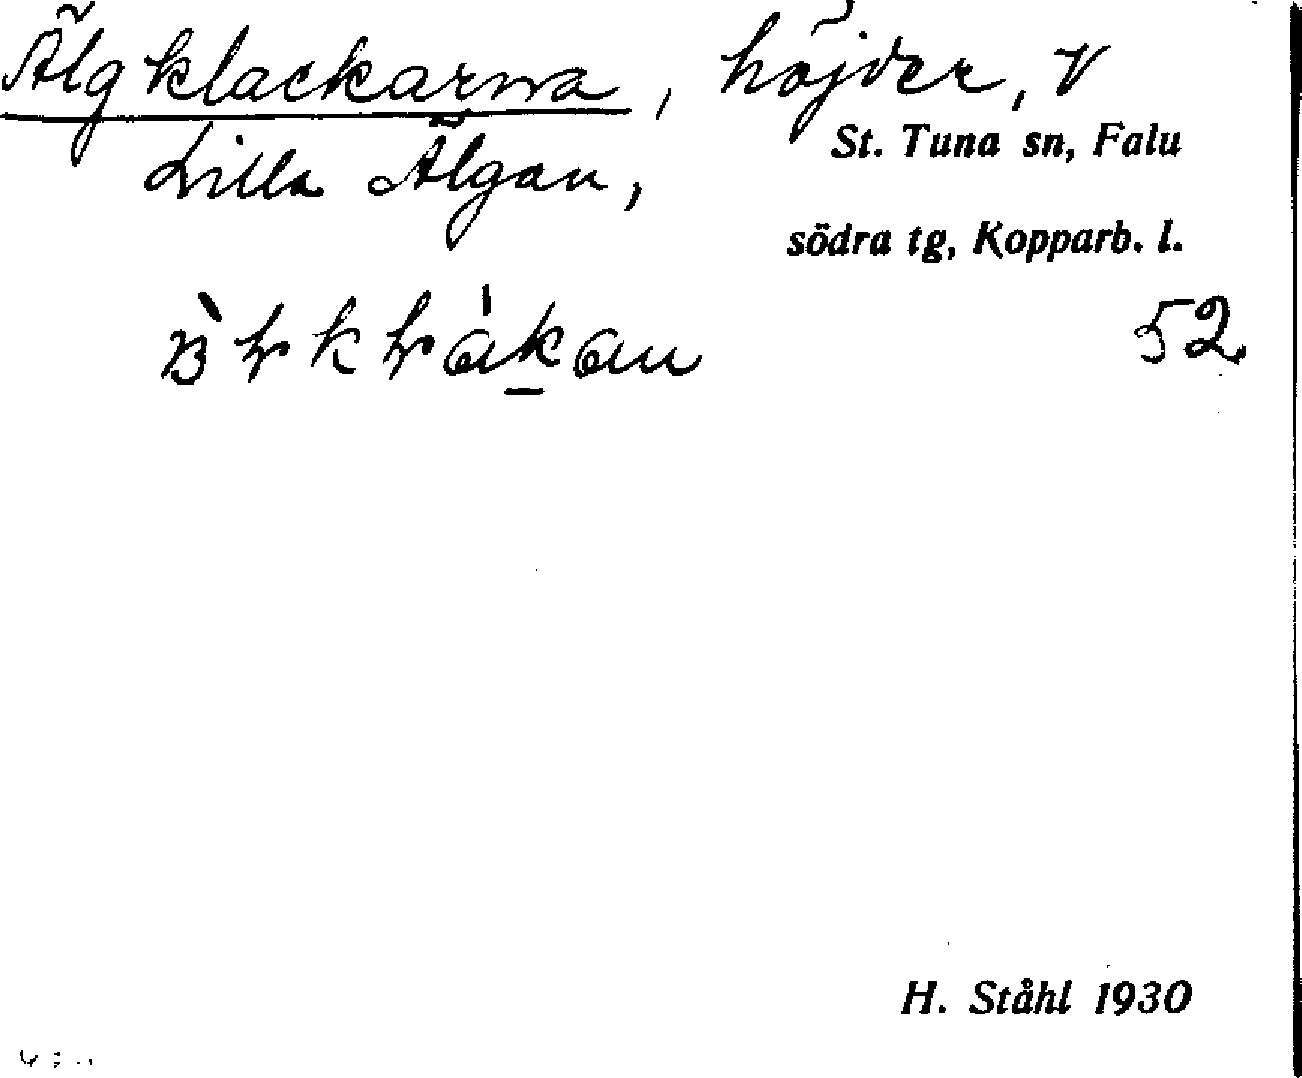 Älgklackarna, höjder, V
Lilla Älgan,
St. Tuna sn, Falu
södra tg, Kopparb. l.
52
H. Ståhl 1930